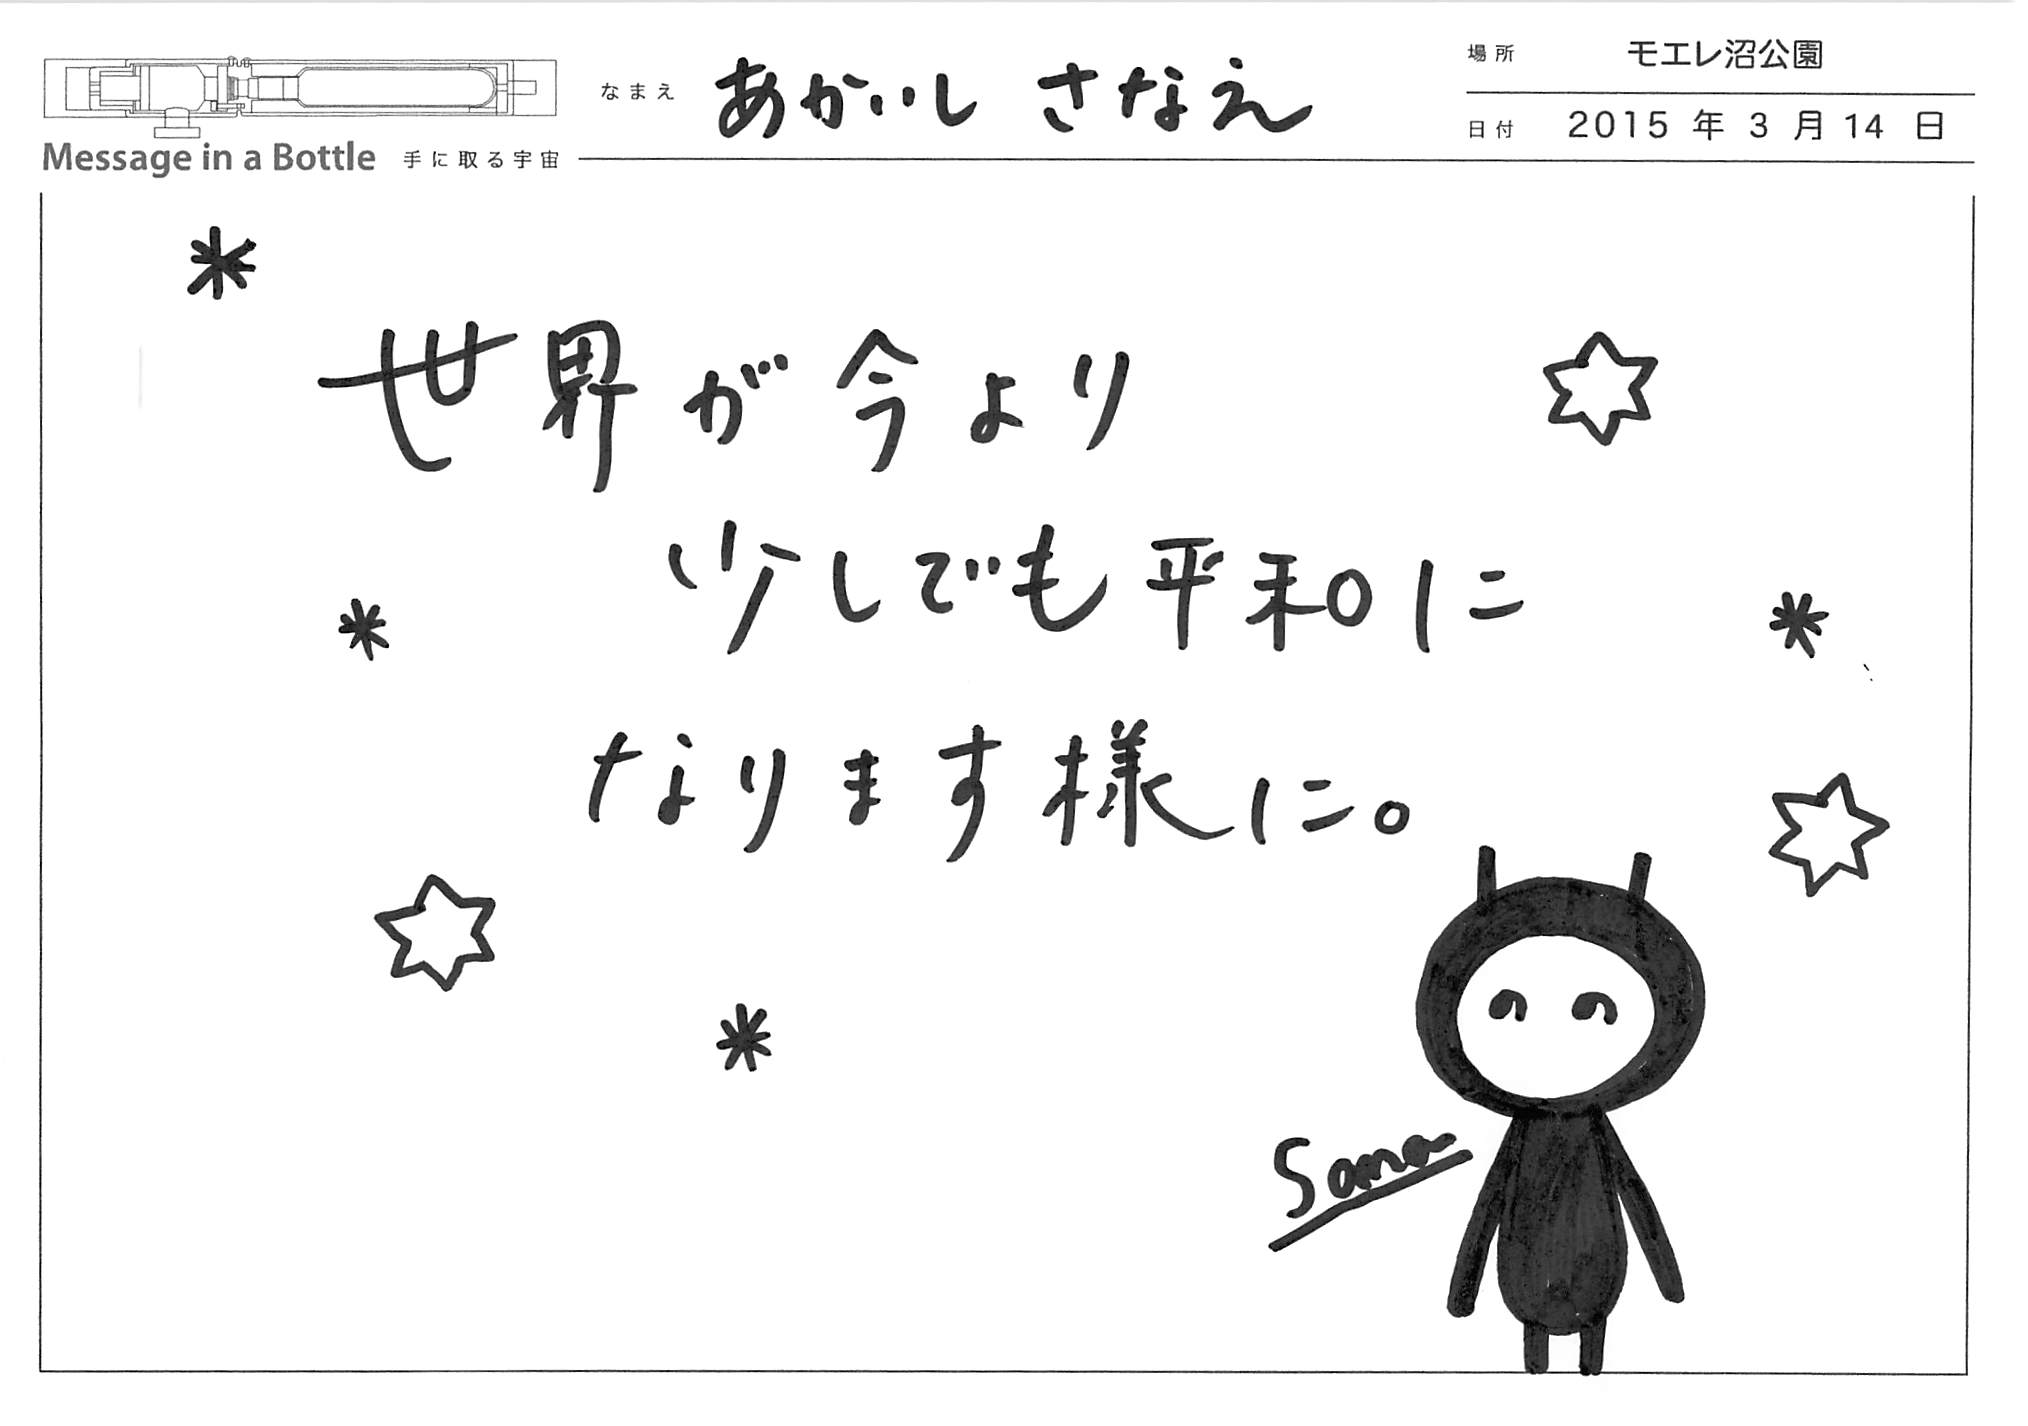 なまえ あかいし さなえ
場所 モエレ沼公園
日付 2015 年 3 月 14 日
Message in a Bottle 手に取る宇宙
世界が今より
少しでも平和に
なります様に。
Sana